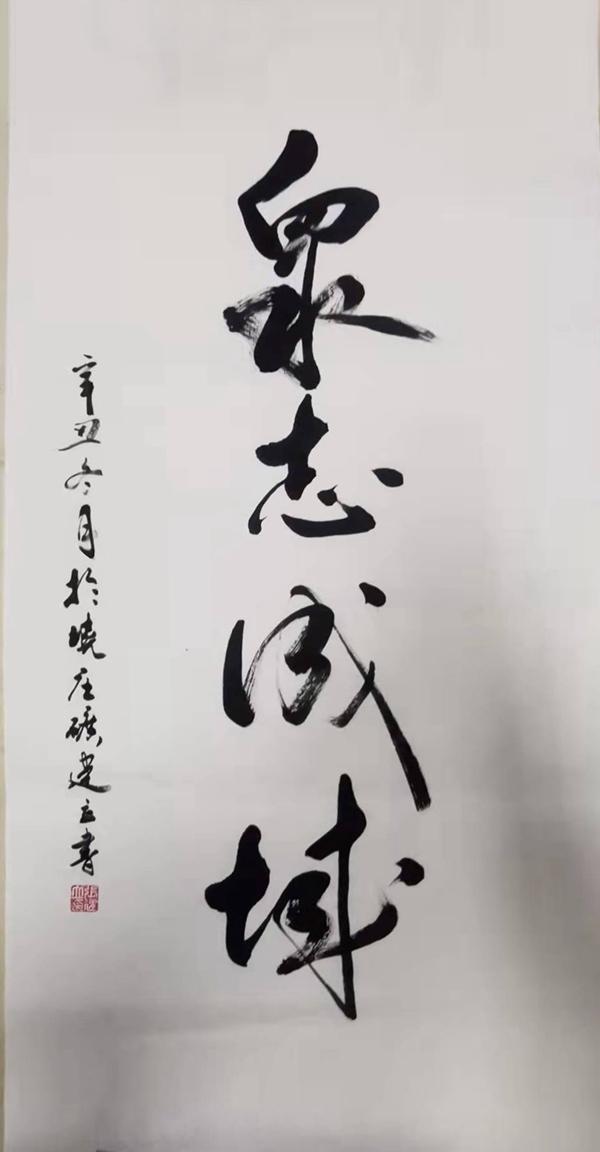 眾志成城
辛丑冬月於堯庄礦建立書